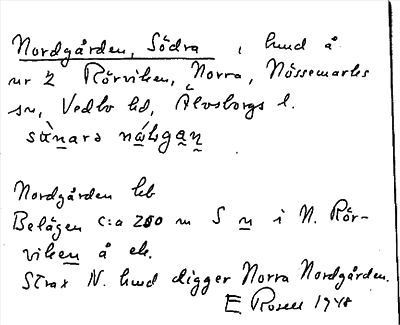 Nordgården, Södra, hmd å
nr 2 Rörviken, Norra, Nössemarks
sn, Vedbo hd, Älvsborgs l.
Nordgården hb
Belägen c:a 250 m S n i N. Rör-
viken å ek.
Strax N. hmd ligger Norra Nordgården.
E Rosell 1948